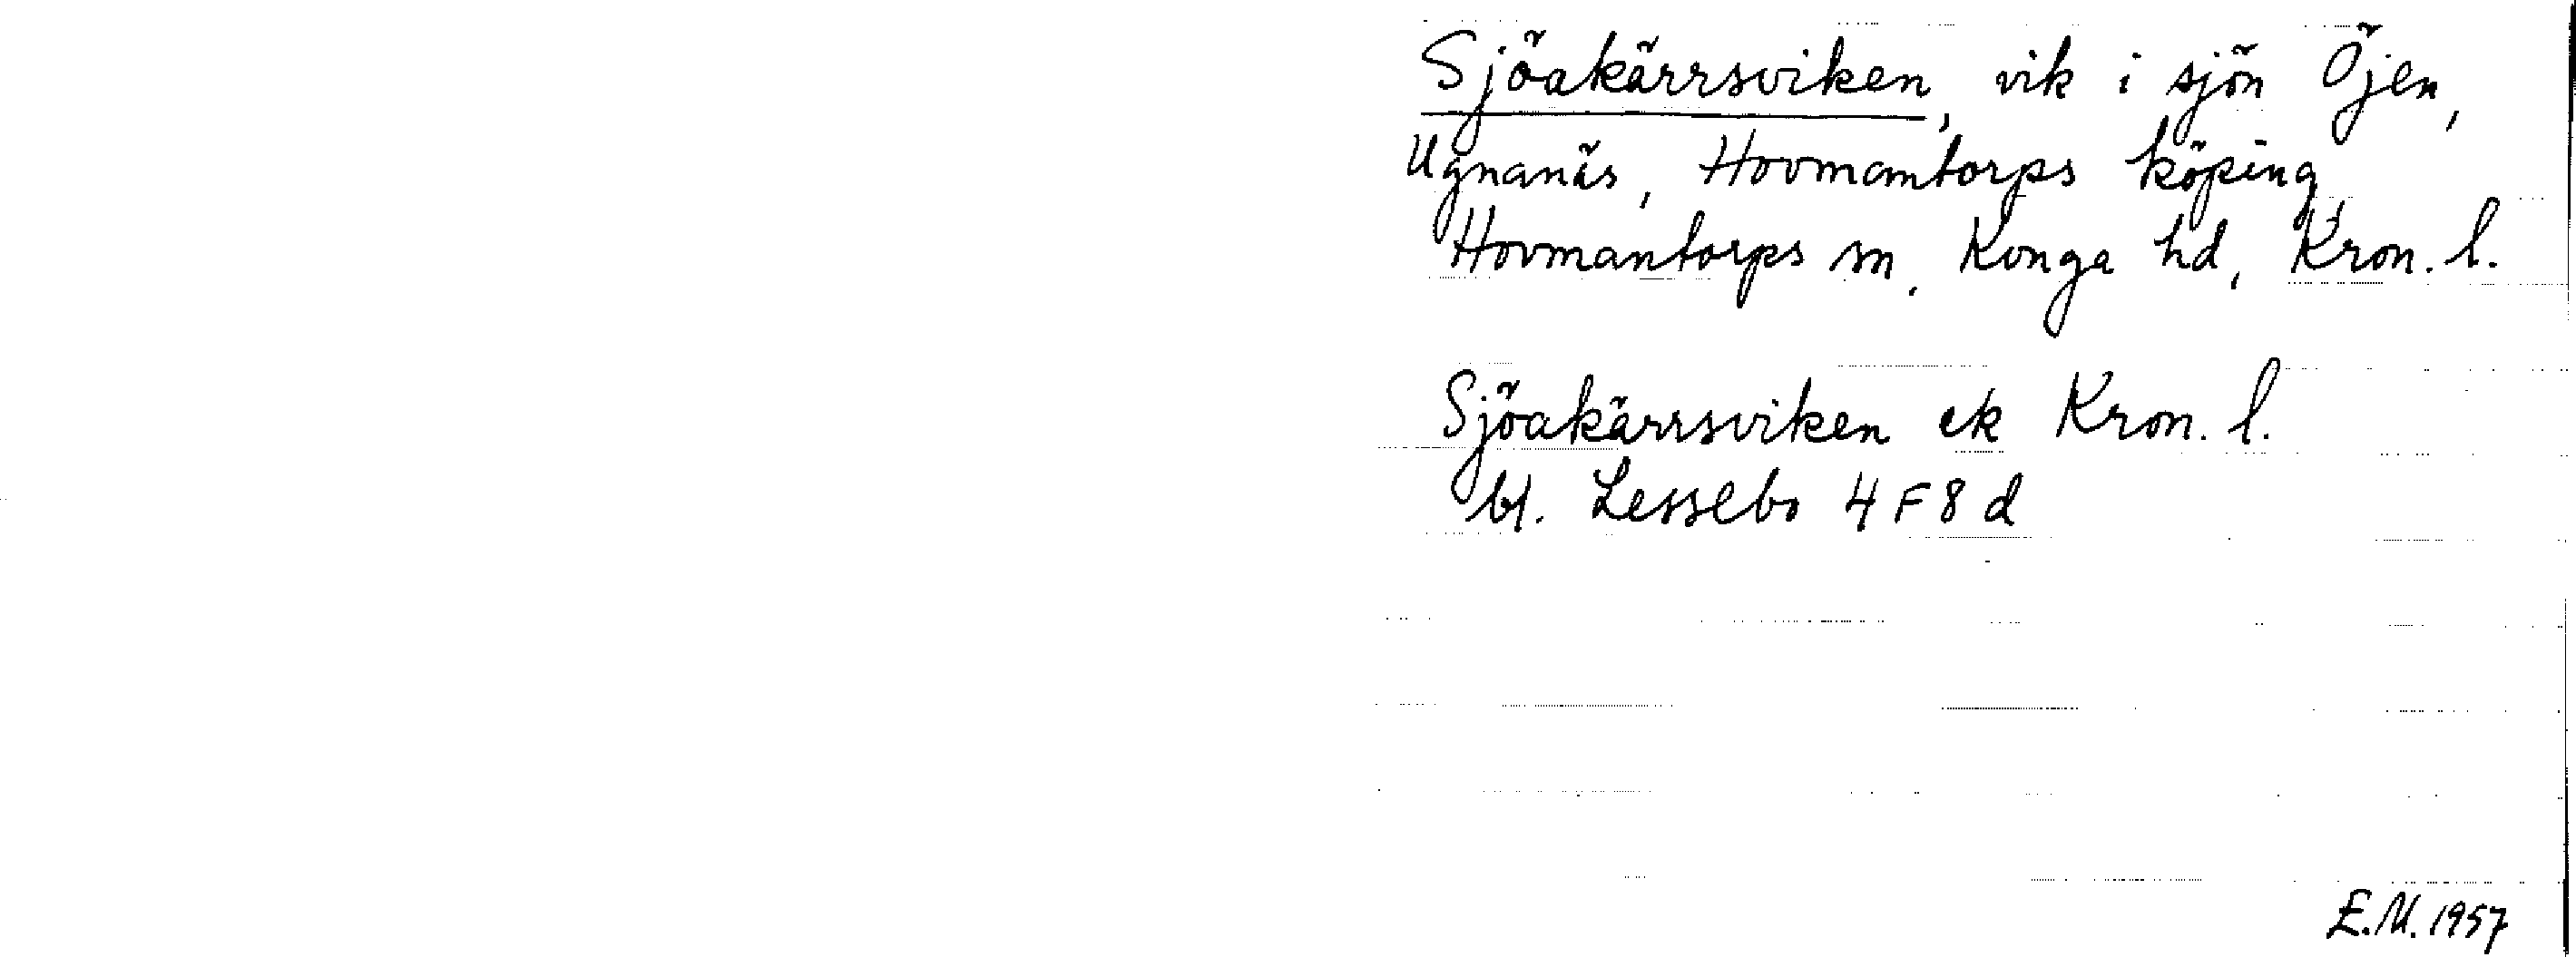 Sjöakärrsviken, vik i sjön Öjen,
Ugnanäs, Hovmantorps köping,
Hovmantorps sn, Konga hd, Kron. l.
Sjöakärrsviken ek Kron. l.
bl. Lessebo 4 F 8 d
E.M. 1957